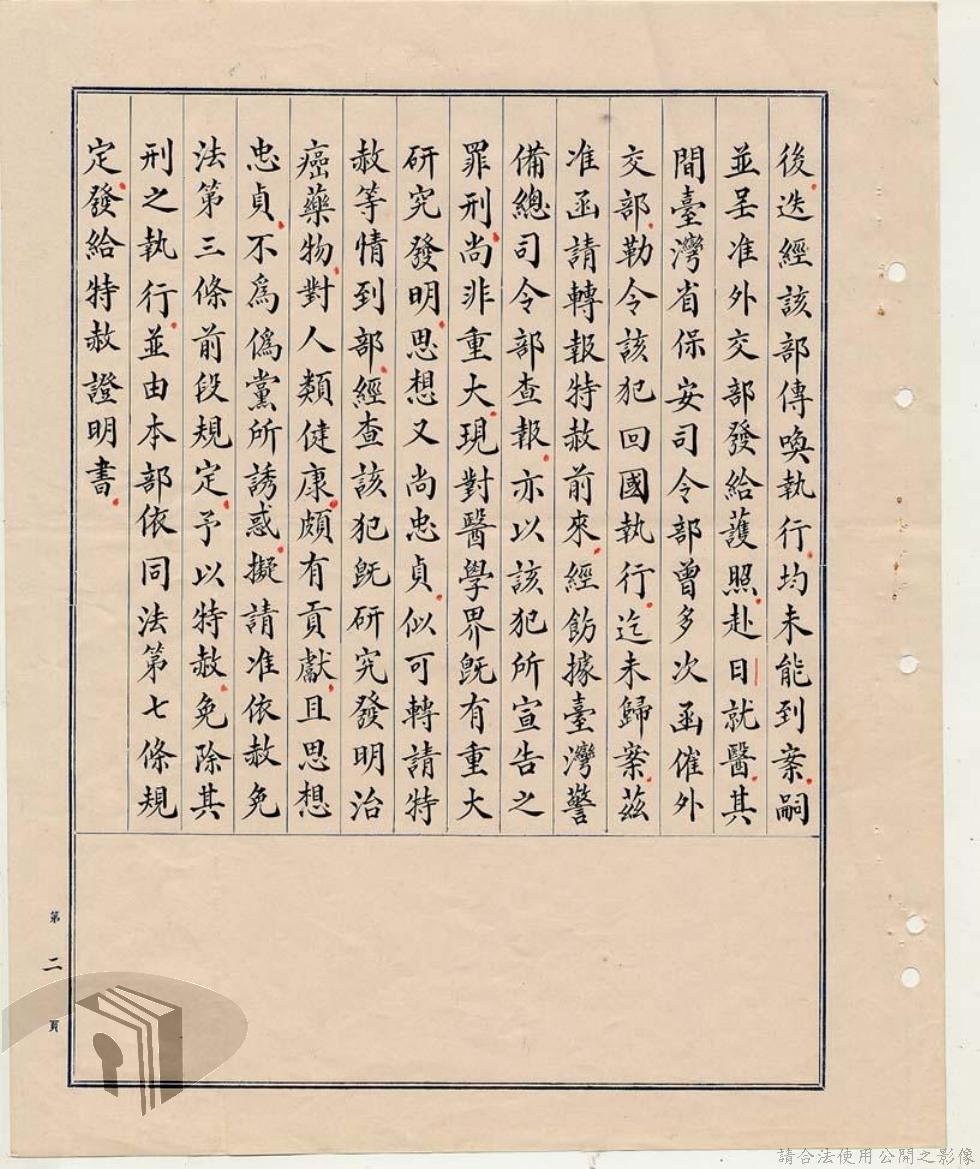 後迭經該部傳喚執行均未能到案嗣
並呈准外交部發給護照赴日就醫其
間臺灣省保安司令部曾多次函催外
交部勒令該犯回國執行迄未歸案茲
准函請轉報特赦前來經飭據臺灣警
備總司令部查報亦以該犯所宣告之
罪刑尚非重大現對醫學界既有重大
研究發明思想又尚忠貞似可轉請特
赦等情到部經查該犯既研究發明治
癌藥物對人類健康頗有貢獻且思想
忠貞不為偽黨所誘惑擬請准依赦免
法第三條前段規定予以特赦免除其
刑之執行並由本部依同法第七條規
定發給特赦證明書
第二頁
請合法使用公開之影像